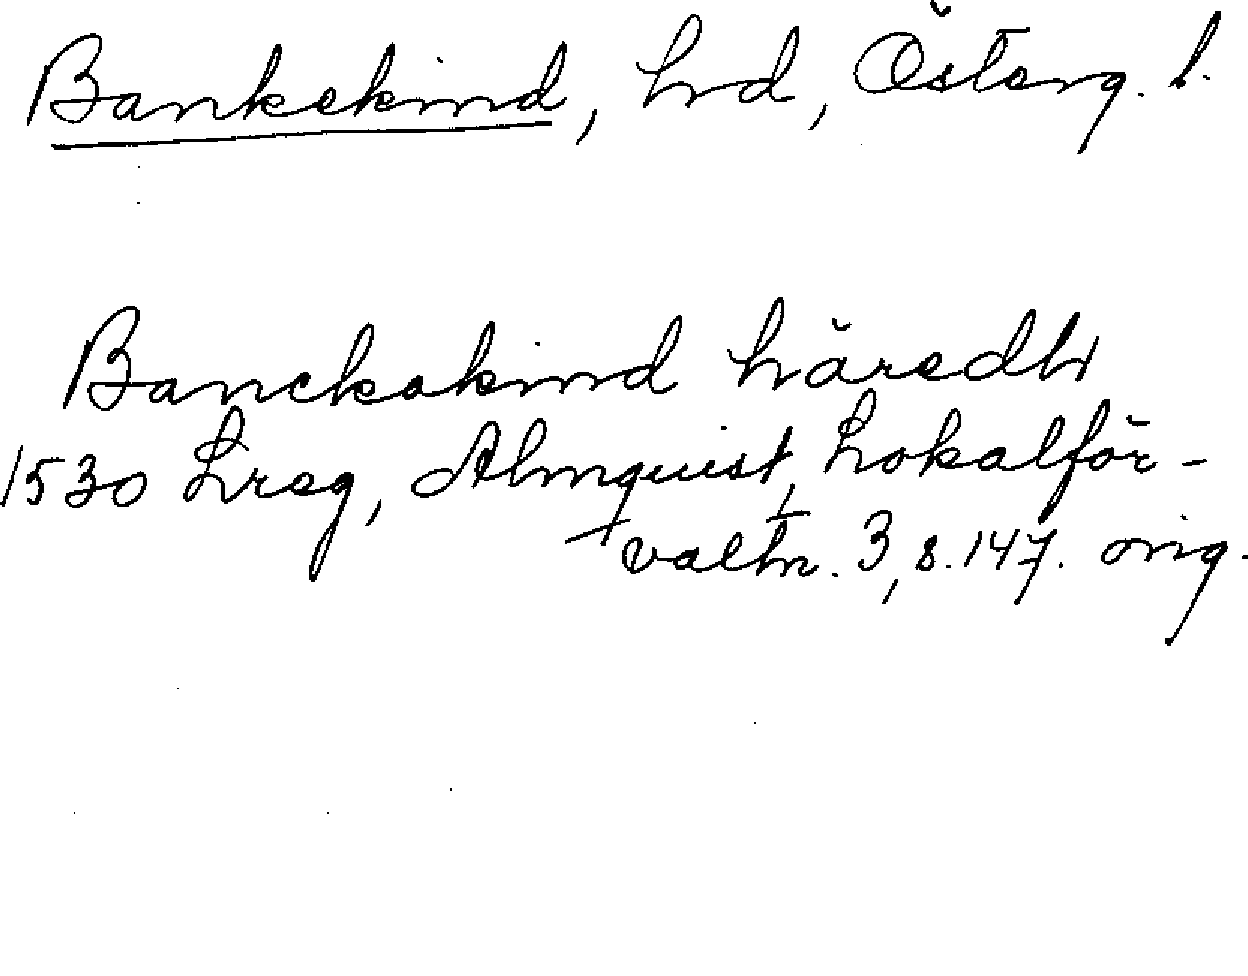 Bankekind, hrd, Österg. l.
Banckakind häredh
1530 Lreg, Almquist, Lokalför-
valtn. 3, s. 147. orig.